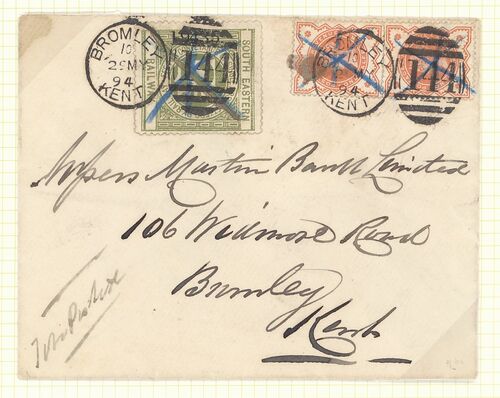 BROMLEY
10
29 MY
94
KENT
SOUTH EASTERN
RAILWAY
144
BROMLEY
94
KENT
144
Messrs Martin's Bank Limited
106 Widmore Road
Bromley
Kent